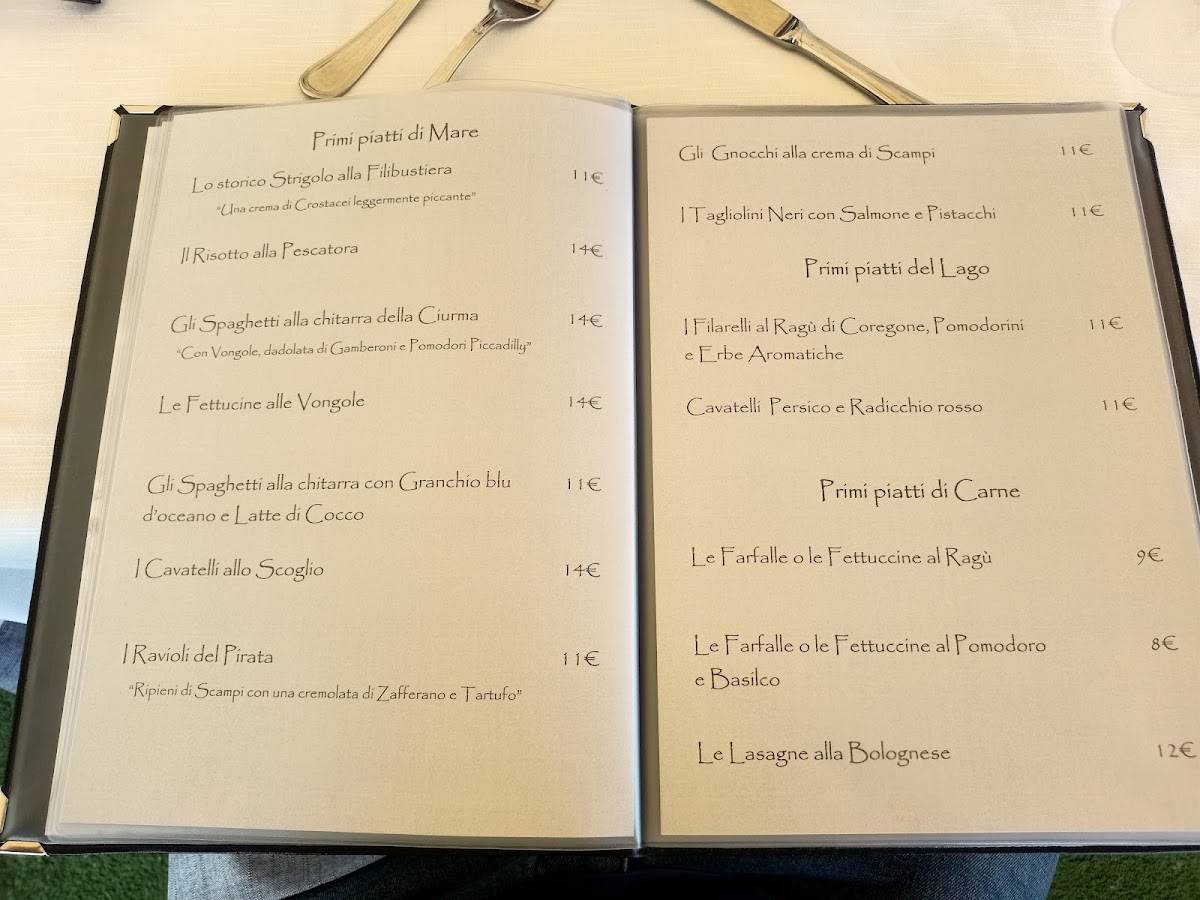 Primi piatti di Mare
Lo storico Strigolo alla Filibustiera 11€
"Una crema di Crostacei leggermente piccante"
Il Risotto alla Pescatora 14€
Gli Spaghetti alla chitarra della Ciurma 14€
"Con Vongole, dadolata di Gamberoni e Pomodori Piccadilly"
Le Fettucine alle Vongole 14€
Gli Spaghetti alla chitarra con Granchio blu 11€
d'oceano e Latte di Cocco
I Cavatelli allo Scoglio 14€
I Ravioli del Pirata 11€
"Ripieni di Scampi con una cremolata di Zafferano e Tartufo"
Gli Gnocchi alla crema di Scampi 11€
I Tagliolini Neri con Salmone e Pistacchi 11€
Primi piatti del Lago
I Filarelli al Ragù di Coregone, Pomodorini 11€
e Erbe Aromatiche
Cavatelli Persico e Radicchio rosso 11€
Primi piatti di Carne
Le Farfalle o le Fettuccine al Ragù 9€
Le Farfalle o le Fettuccine al Pomodoro 8€
e Basilco
Le Lasagne alla Bolognese 12€